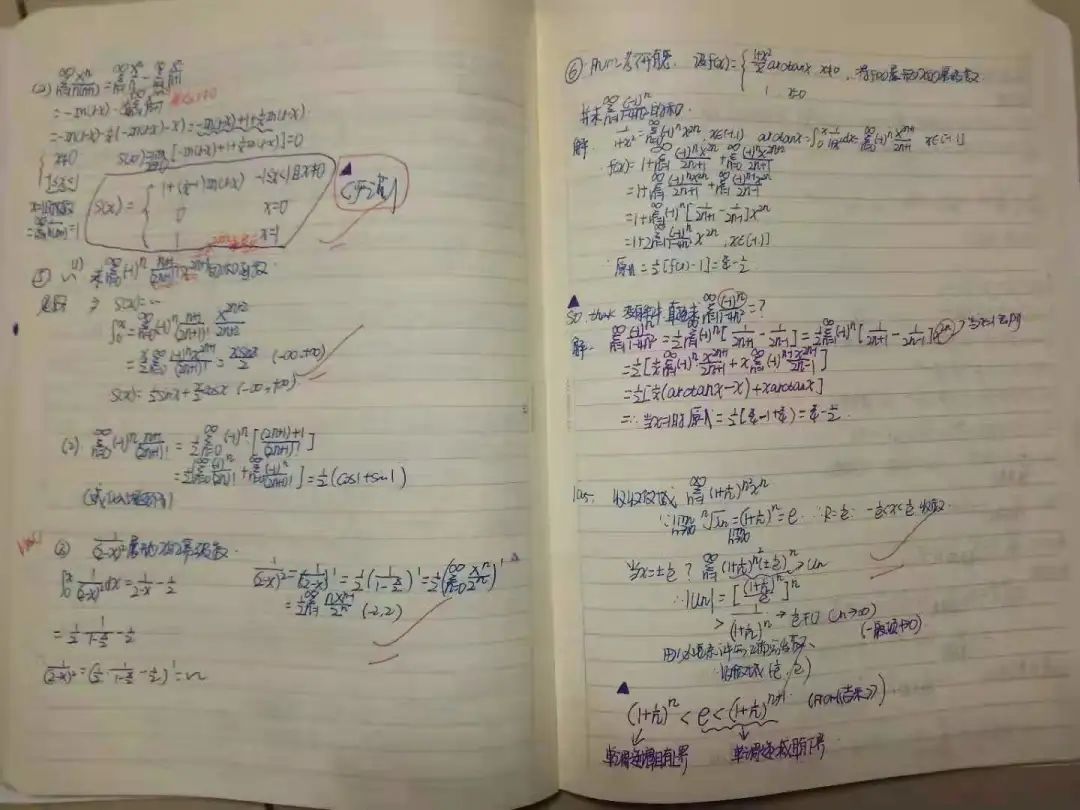 (2) ∑_{n=1}^∞ x^n/n(n+1) = ∑_{n=1}^∞ x^n/n - ∑_{n=1}^∞ x^n/(n+1)
= -ln(1-x) -
= -ln(1-x) - 1/x(-ln(1-x)-x) = -ln(1-x)+1+1/x ln(1-x)
x≠0 S(0)= [-ln(1-x)+1+1/x ln(1-x)]=0
S(x)= { 1+(1/x-1)ln(1-x) -1≤x<1且x≠0
0 x=0
1 x=1
(1) 求∑_{n=0}^∞(-1)^n (n+1)/(2n+1)! x^{2n+1}的和函数
⇒ S(x)=~
∫_0^x = ∑_{n=0}^∞(-1)^n (n+1)/(2n+1)! x^{2n+2}/(2n+2)
= x/2 ∑_{n=0}^∞ (-1)^n x^{2n+1}/(2n+1)! = xsinx/2 (-∞,+∞)
S(x)=1/2 sinx+x/2 cosx (-∞,+∞)
(2) ∑_{n=0}^∞(-1)^n (n+1)/(2n+1)! = 1/2 ∑_{n=0}^∞(-1)^n[((2n+1)+1)/(2n+1)!]
= 1/2[∑_{n=0}^∞ (-1)^n/(2n)! + ∑_{n=0}^∞ (-1)^n/(2n+1)!] = 1/2(cos1+sin1)
② 1/(2-x)² 展成x的幂级数.
∫_0^x 1/(2-x)² dx = 1/(2-x) - 1/2
= 1/2 · 1/(1-x/2) - 1/2
1/(2-x)² = (1/2 · 1/(1-x/2) - 1/2)' = ~
1/(2-x)² = (1/(2-x))' = 1/2(1/(1-x/2))' = 1/2(∑_{n=0}^∞ x^n/2^n)'
= 1/2 ∑_{n=1}^∞ nx^{n-1}/2^n (-2,2)
⑥ 设f(x)= { (1+x²)/x arctanx x≠0 , 将f(x)展成x的幂级数
1 x=0
并求∑_{n=1}^∞ (-1)^n/(1-4n²)的和.
解. 1/(1+x²)=∑_{n=0}^∞(-1)^n x^{2n}, x∈(-1,1) arctanx=∫_0^x 1/(1+x²)dx=∑_{n=0}^∞(-1)^n x^{2n+1}/(2n+1) x∈[-1,1]
f(x)=1+∑_{n=1}^∞ (-1)^n x^{2n}/(2n+1) + ∑_{n=0}^∞ (-1)^n x^{2n+2}/(2n+1)
=1+∑_{n=1}^∞ (-1)^n x^{2n}/(2n+1) + ∑_{n=1}^∞ (-1)^{n-1} x^{2n}/(2n-1)
=1+∑_{n=1}^∞(-1)^n[1/(2n+1) - 1/(2n-1)]x^{2n}
=1+2∑_{n=1}^∞ (-1)^n/(1-4n²) x^{2n} , x∈[-1,1]
∴原式=1/2[f(1)-1]=π/4-1/2
SO. think 直接求∑_{n=1}^∞ (-1)^n/(1-4n²)=?
解. ∑_{n=1}^∞ (-1)^n/(1-4n²) = 1/2∑_{n=1}^∞(-1)^n[1/(2n+1) - 1/(2n-1)] = 1/2∑_{n=1}^∞(-1)^n[1/(2n+1) - 1/(2n-1)]x^{2n} 当x=1时
=1/2[1/x∑_{n=1}^∞(-1)^n x^{2n+1}/(2n+1) + x∑_{n=1}^∞ (-1)^{n-1} x^{2n-1}/(2n-1)]
=1/2[1/x(arctanx-x)+xarctanx]
=∴当x=1时 原式=1/2[π/4-1+π/4]=π/4-1/2.
收敛域 ∑_{n=1}^∞(1+1/n)^{n²}x^n
∵lim_{n→∞} ⁿ√Un=(1+1/n)^n=e ∴R=1/e. -1/e<x<1/e 收敛
当x=±1/e ? ∑_{n=1}^∞(1+1/n)^{n²}(±1/e)^n → Un
∴|Un|=[(1+1/n)^n/e]^n
> 1/(1+1/n)^n → 1/e≠0 (n→∞)
(一般项↛0)
收敛域(-1/e,1/e)
(1+1/n)^n < e < (1+1/n)^{n+1}.
单调递增有上界 单调递减有下界